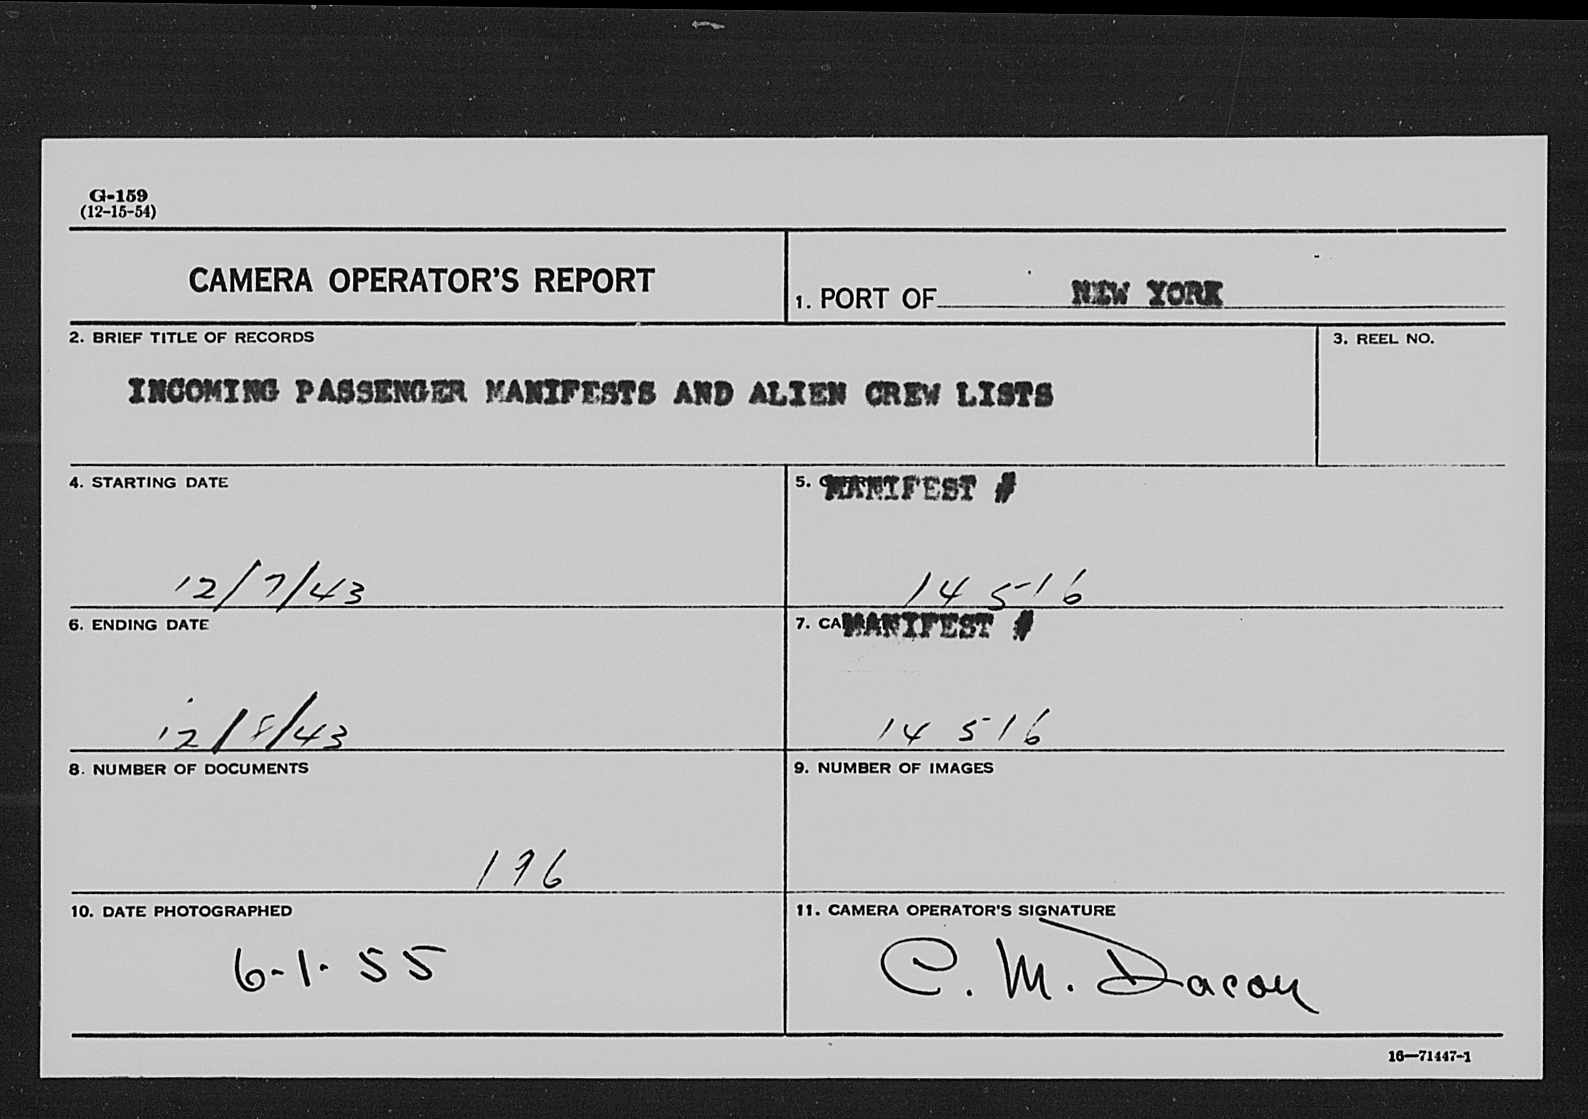 G-159
(12-15-54)
CAMERA OPERATOR'S REPORT
1. PORT OF NEW YORK
2. BRIEF TITLE OF RECORDS
3. REEL NO.
INCOMING PASSENGER MANIFESTS AND ALIEN CREW LISTS
4. STARTING DATE
5. MANIFEST #
12/7/43
14516
6. ENDING DATE
7. MANIFEST #
12/8/43
14516
8. NUMBER OF DOCUMENTS
9. NUMBER OF IMAGES
196
10. DATE PHOTOGRAPHED
11. CAMERA OPERATOR'S SIGNATURE
6-1-55
C. M. Dacon
16—71447-1